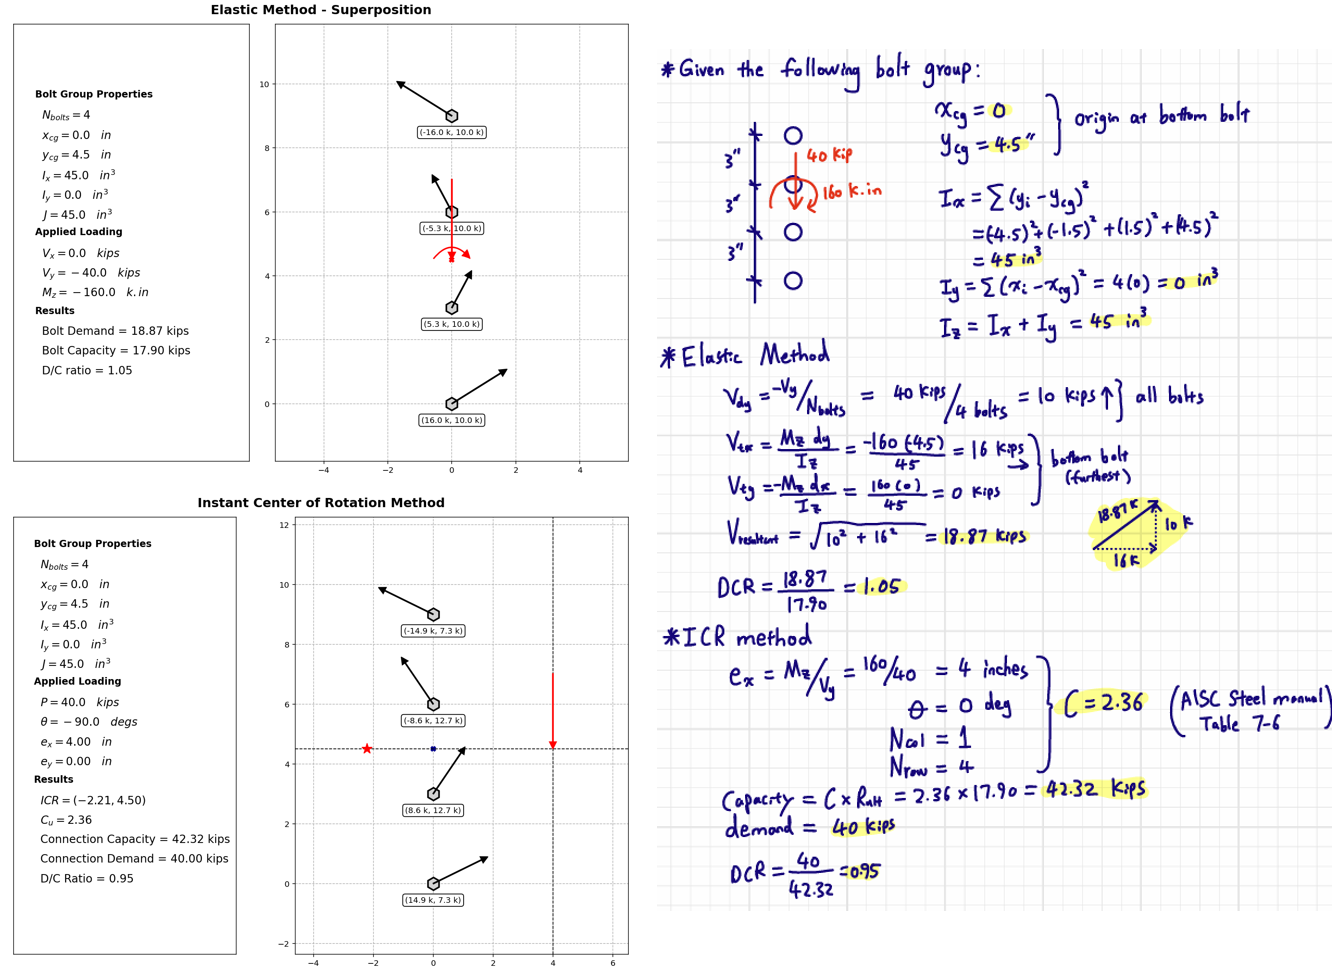 Elastic Method - Superposition
Bolt Group Properties
N_bolts = 4
x_cg = 0.0 in
y_cg = 4.5 in
I_x = 45.0 in³
I_y = 0.0 in³
J = 45.0 in³
Applied Loading
V_x = 0.0 kips
V_y = −40.0 kips
M_z = −160.0 k.in
Results
Bolt Demand = 18.87 kips
Bolt Capacity = 17.90 kips
D/C ratio = 1.05
10
8
6
4
2
0
−4
−2
0
2
4
(-16.0 k, 10.0 k)
(-5.3 k, 10.0 k)
(5.3 k, 10.0 k)
(16.0 k, 10.0 k)
Instant Center of Rotation Method
Bolt Group Properties
N_bolts = 4
x_cg = 0.0 in
y_cg = 4.5 in
I_x = 45.0 in³
I_y = 0.0 in³
J = 45.0 in³
Applied Loading
P = 40.0 kips
θ = −90.0 degs
e_x = 4.00 in
e_y = 0.00 in
Results
ICR = (−2.21, 4.50)
C_u = 2.36
Connection Capacity = 42.32 kips
Connection Demand = 40.00 kips
D/C Ratio = 0.95
12
10
8
6
4
2
0
−2
−4
−2
0
2
4
6
(-14.9 k, 7.3 k)
(-8.6 k, 12.7 k)
(8.6 k, 12.7 k)
(14.9 k, 7.3 k)
* Given the following bolt group:
3"
3"
3"
40 kip
160 k.in
x_cg = 0
y_cg = 4.5"
origin at bottom bolt
I_x = ∑(y_i - y_cg)²
= (-4.5)² + (-1.5)² + (1.5)² + (4.5)²
= 45 in³
I_y = ∑(x_i - x_cg)² = 4(0) = 0 in³
I_z = I_x + I_y = 45 in³
* Elastic Method
V_dy = -V_y/N_bolts = 40 kips/4 bolts = 10 kips ↑ } all bolts
V_tx = M_z dy / I_z = -160(-4.5)/45 = 16 kips →
V_ty = -M_z dx / I_z = 160(0)/45 = 0 kips
bottom bolt
(furthest)
V_resultant = √(10² + 16²) = 18.87 kips
18.87 k
10 k
16 k
DCR = 18.87/17.90 = 1.05
* ICR method
e_x = M_z/V_y = 160/40 = 4 inches
θ = 0 deg
N_col = 1
N_row = 4
C = 2.36
(AISC Steel manual)
Table 7-6
Capacity = C x R_ult = 2.36 x 17.90 = 42.32 kips
demand = 40 kips
DCR = 40/42.32 = 0.95